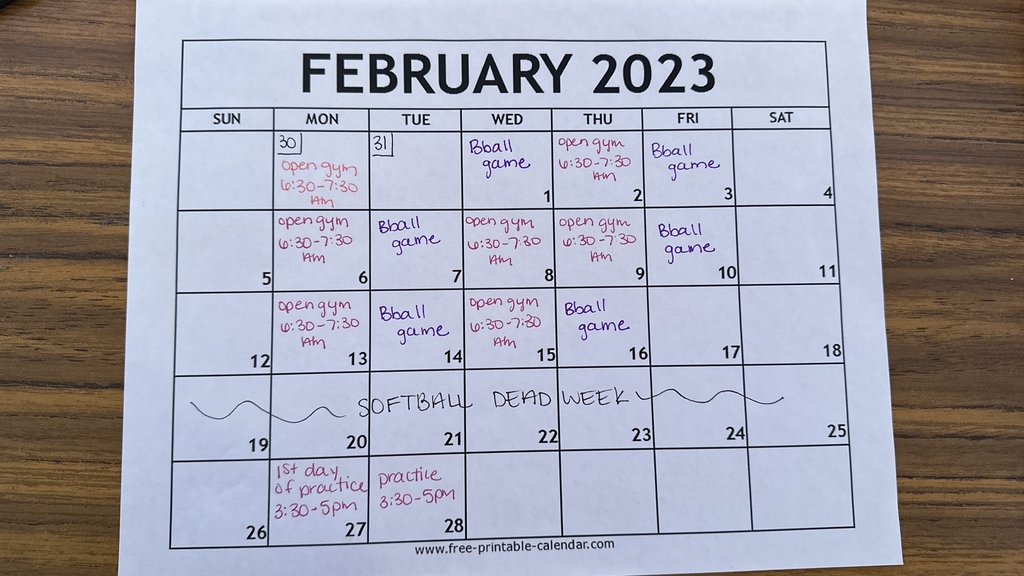 FEBRUARY 2023
SUN MON TUE WED THU FRI SAT
30
open gym
6:30-7:30
Am
31
Bball
game
1
open gym
6:30-7:30
Am
2
Bball
game
3
4
5
open gym
6:30-7:30
Am
6
Bball
game
7
open gym
6:30-7:30
Am
8
open gym
6:30-7:30
Am
9
Bball
game
10
11
12
open gym
6:30-7:30
Am
13
Bball
game
14
open gym
6:30-7:30
Am
15
Bball
game
16
17
18
SOFTBALL DEAD WEEK
19
20
21
22
23
24
25
26
1st day
of practice
3:30-5pm
27
practice
3:30-5pm
28
www.free-printable-calendar.com